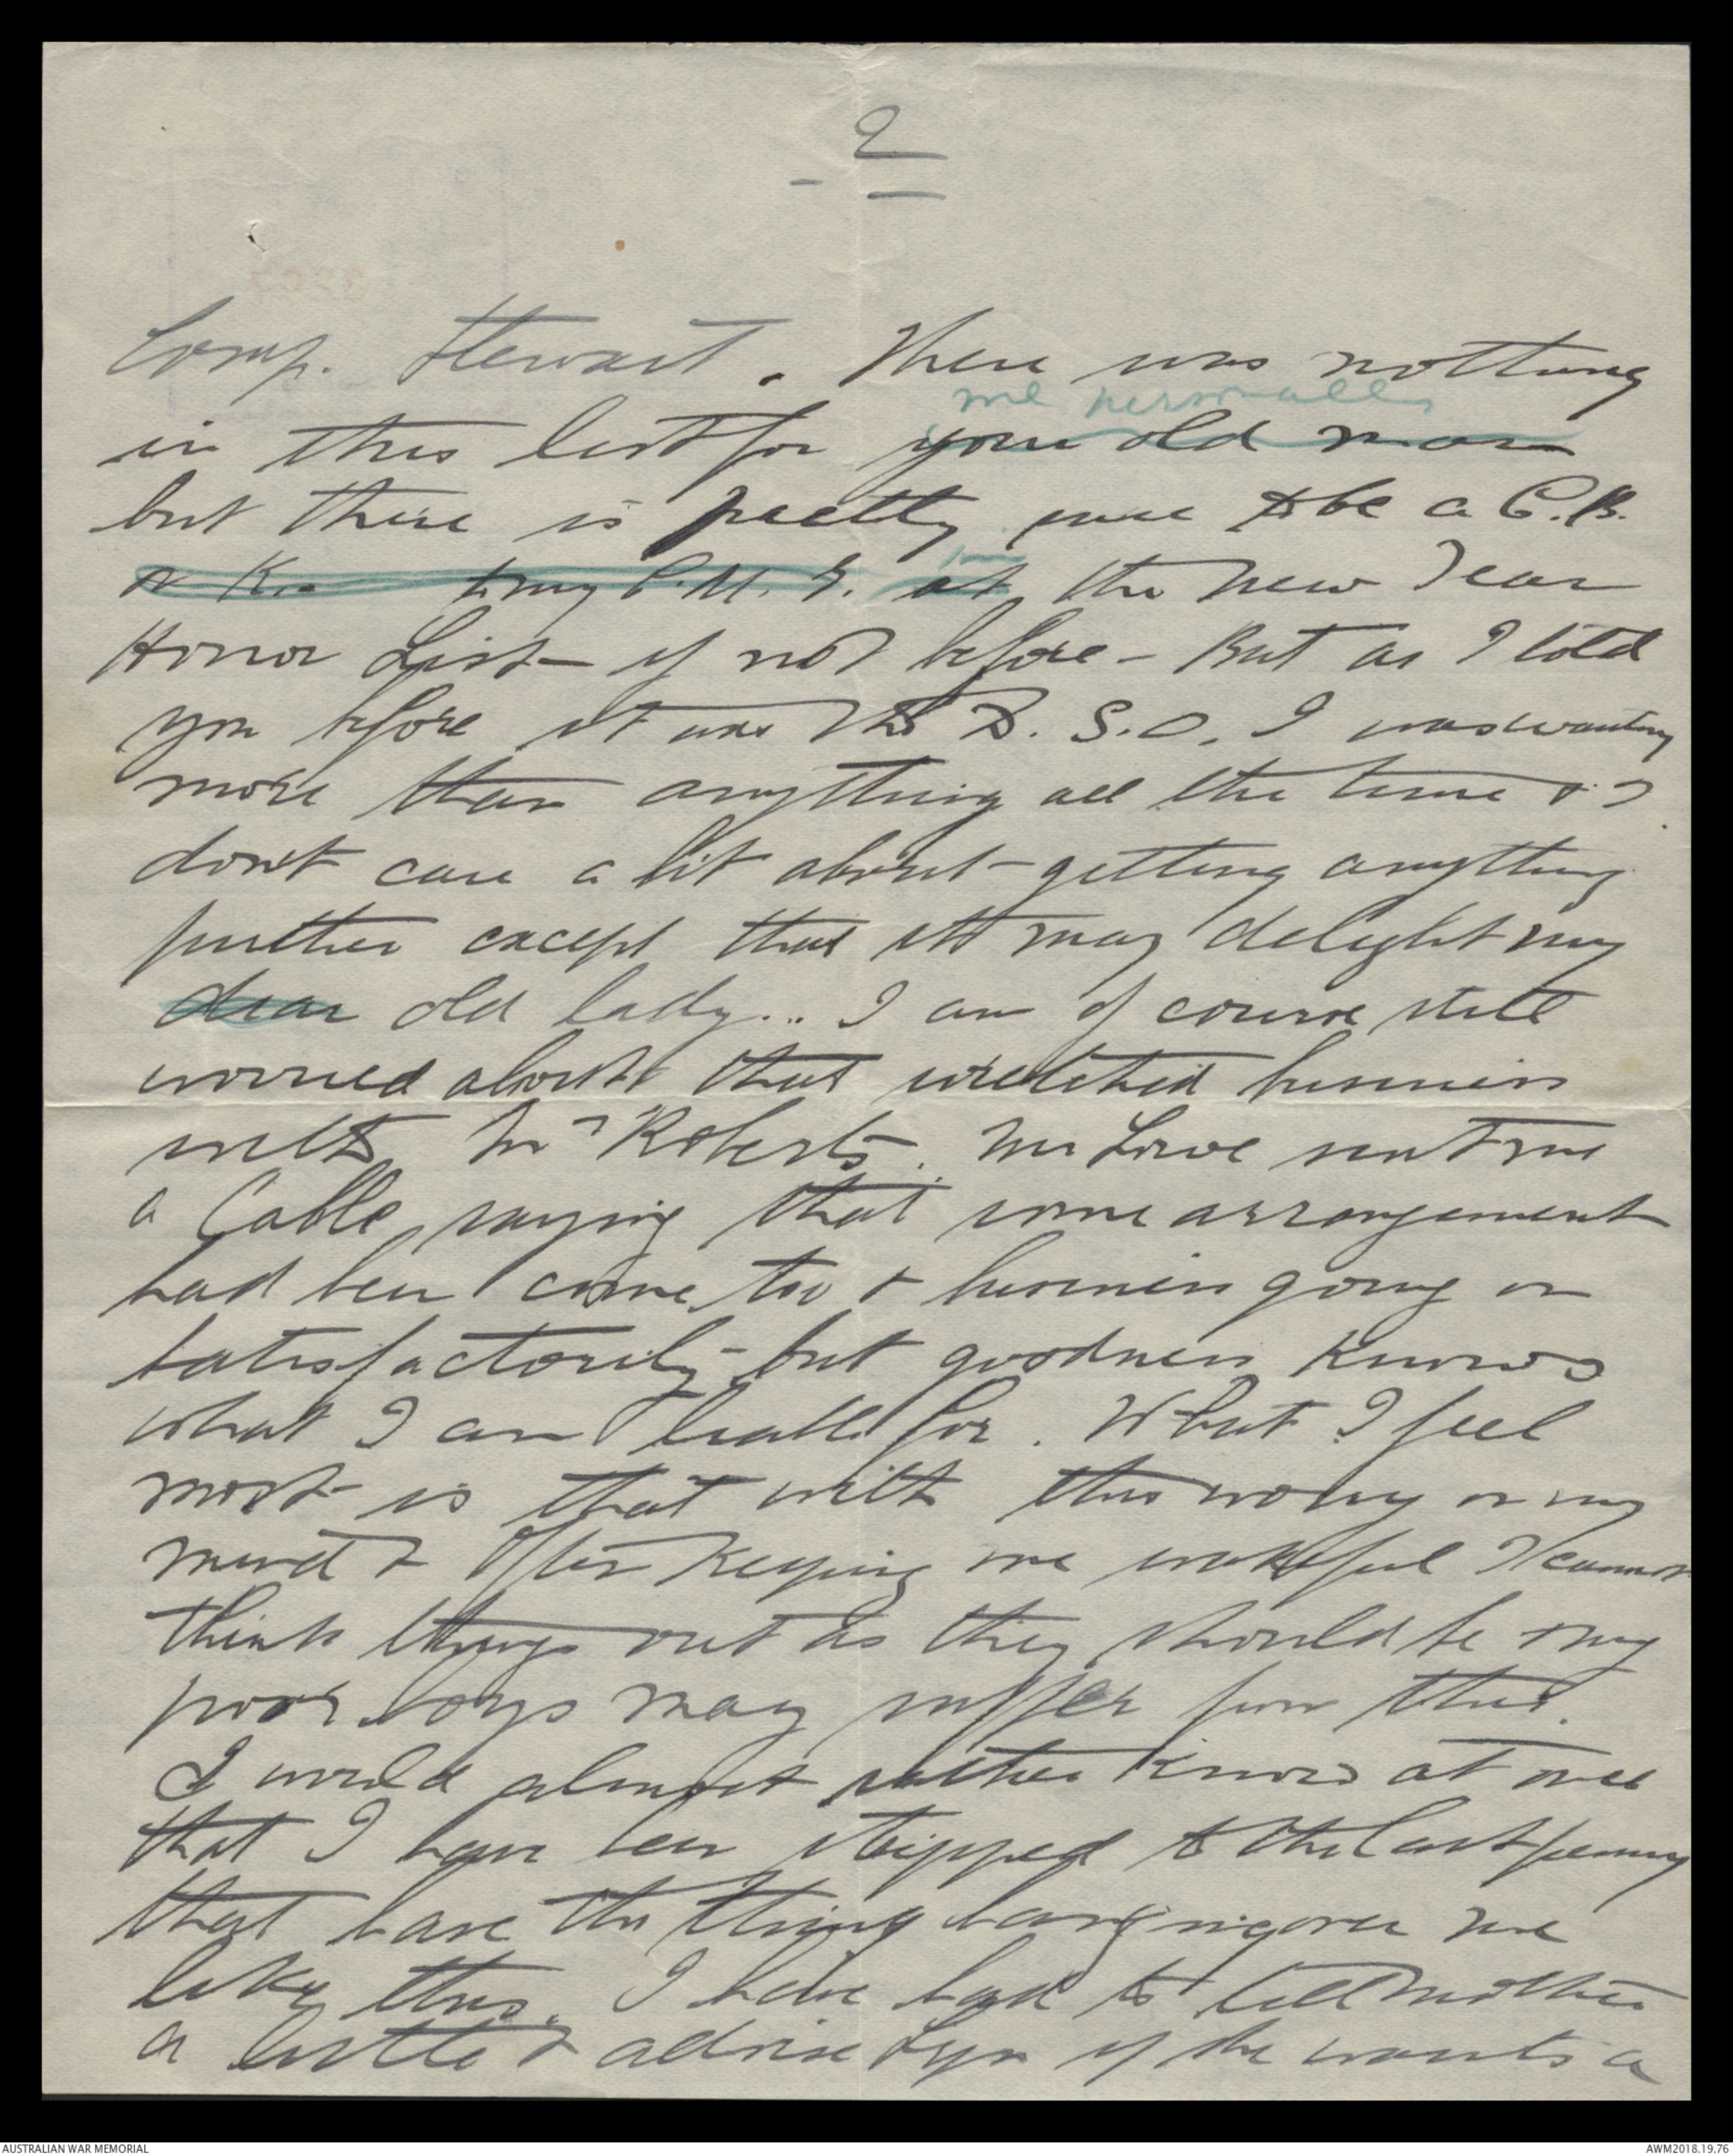 2
Comp. Stewart. There was nothing
me personally
in this list for your old man
but there is pretty sure to be a C.B.
or K. C.M.G. at the New Year
Honor List – if not before – But as I told
you before it was the D.S.O. I was wanting
more than anything all the time & I
dont care a bit about getting anything
further except that it may delight my
dear old lady... I am of course still
worried about that wretched business
with Mr Roberts. Mr Lowe sent me
a Cable, saying that some arrangement
had been come too & business going on
satisfactorily – but goodness knows
what I am liable for. What I feel
most is that with this worry on my
mind & often keeping me wakeful I cannot
think things out as they should be & my
poor boys may suffer for this.
I would almost rather know at once
that I have been stripped to the last penny
that have this thing hanging over me
like this. I have had to tell mother
a little & advise Lyn if she wants a
AUSTRALIAN WAR MEMORIAL
AWM2018.19.76